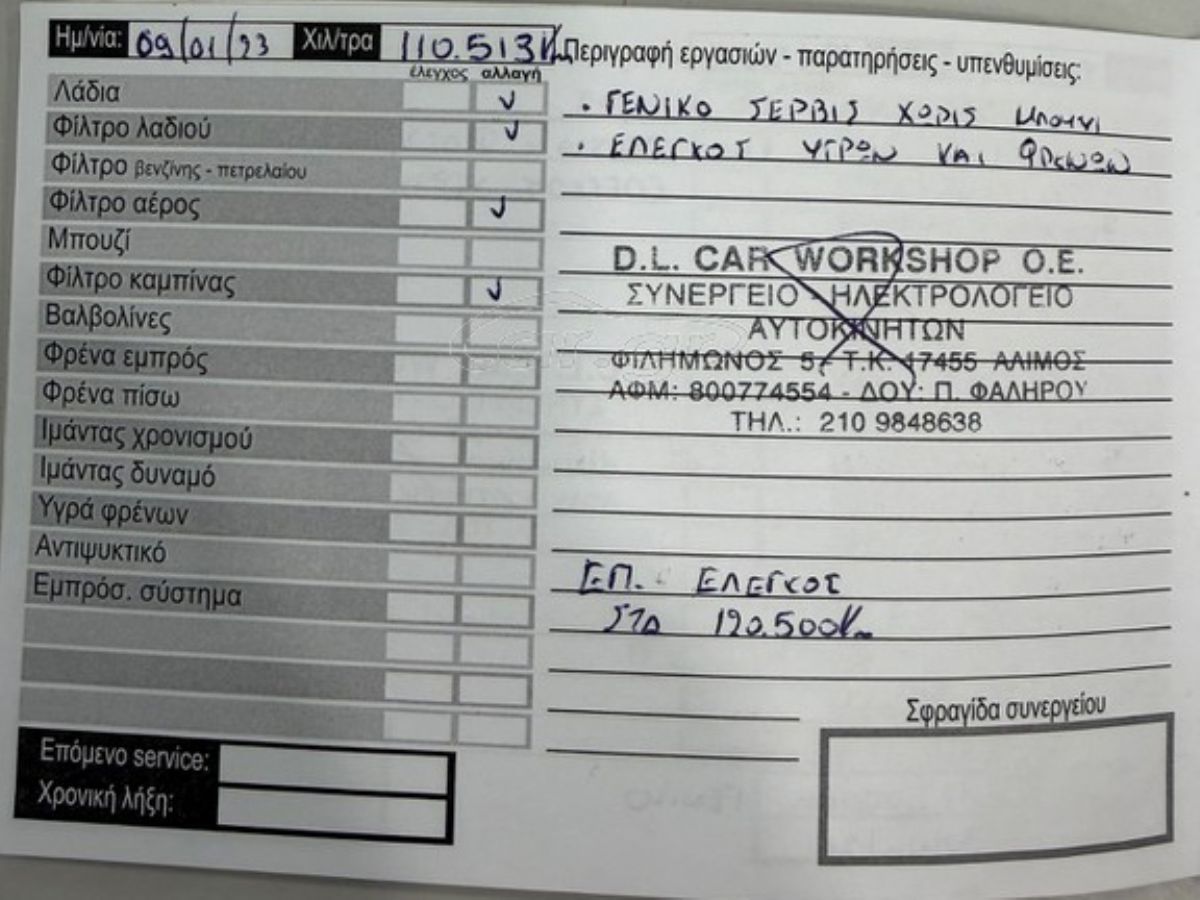 Ημ/νία: 09/01/23 Χιλ/τρα 110.513 Km Περιγραφή εργασιών - παρατηρήσεις - υπενθυμίσεις:
έλεγχος αλλαγή
Λάδια ✓
Φίλτρο λαδιού ✓
Φίλτρο βενζίνης - πετρελαίου
Φίλτρο αέρος ✓
Μπουζί
Φίλτρο καμπίνας ✓
Βαλβολίνες
Φρένα εμπρός
Φρένα πίσω
Ιμάντας χρονισμού
Ιμάντας δυναμό
Υγρά φρένων
Αντιψυκτικό
Εμπρόσ. σύστημα
Επόμενο service:
Χρονική λήξη:
• ΓΕΝΙΚΟ ΣΕΡΒΙΣ ΧΩΡΙΣ ΜΠΟΥΖΙ
• ΕΛΕΓΚΟΣ ΥΓΡΩΝ ΚΑΙ ΦΡΕΝΩΝ
D.L. CAR WORKSHOP O.E.
ΣΥΝΕΡΓΕΙΟ - ΗΛΕΚΤΡΟΛΟΓΕΙΟ
ΑΥΤΟΚΙΝΗΤΩΝ
ΦΙΛΗΜΩΝΟΣ 5, Τ.Κ. 17455 ΑΛΙΜΟΣ
ΑΦΜ: 800774554 - ΔΟΥ: Π. ΦΑΛΗΡΟΥ
ΤΗΛ.: 210 9848638
ΕΠ. ΕΛΕΓΚΟΣ
ΣΤΑ 120.500Km
Σφραγίδα συνεργείου
car.gr